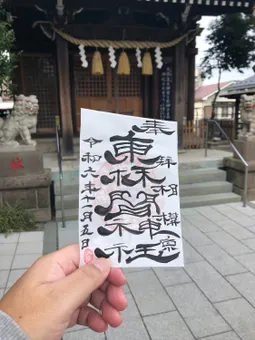 奉拝 相模原
東林間神社
令和六年十一月五日